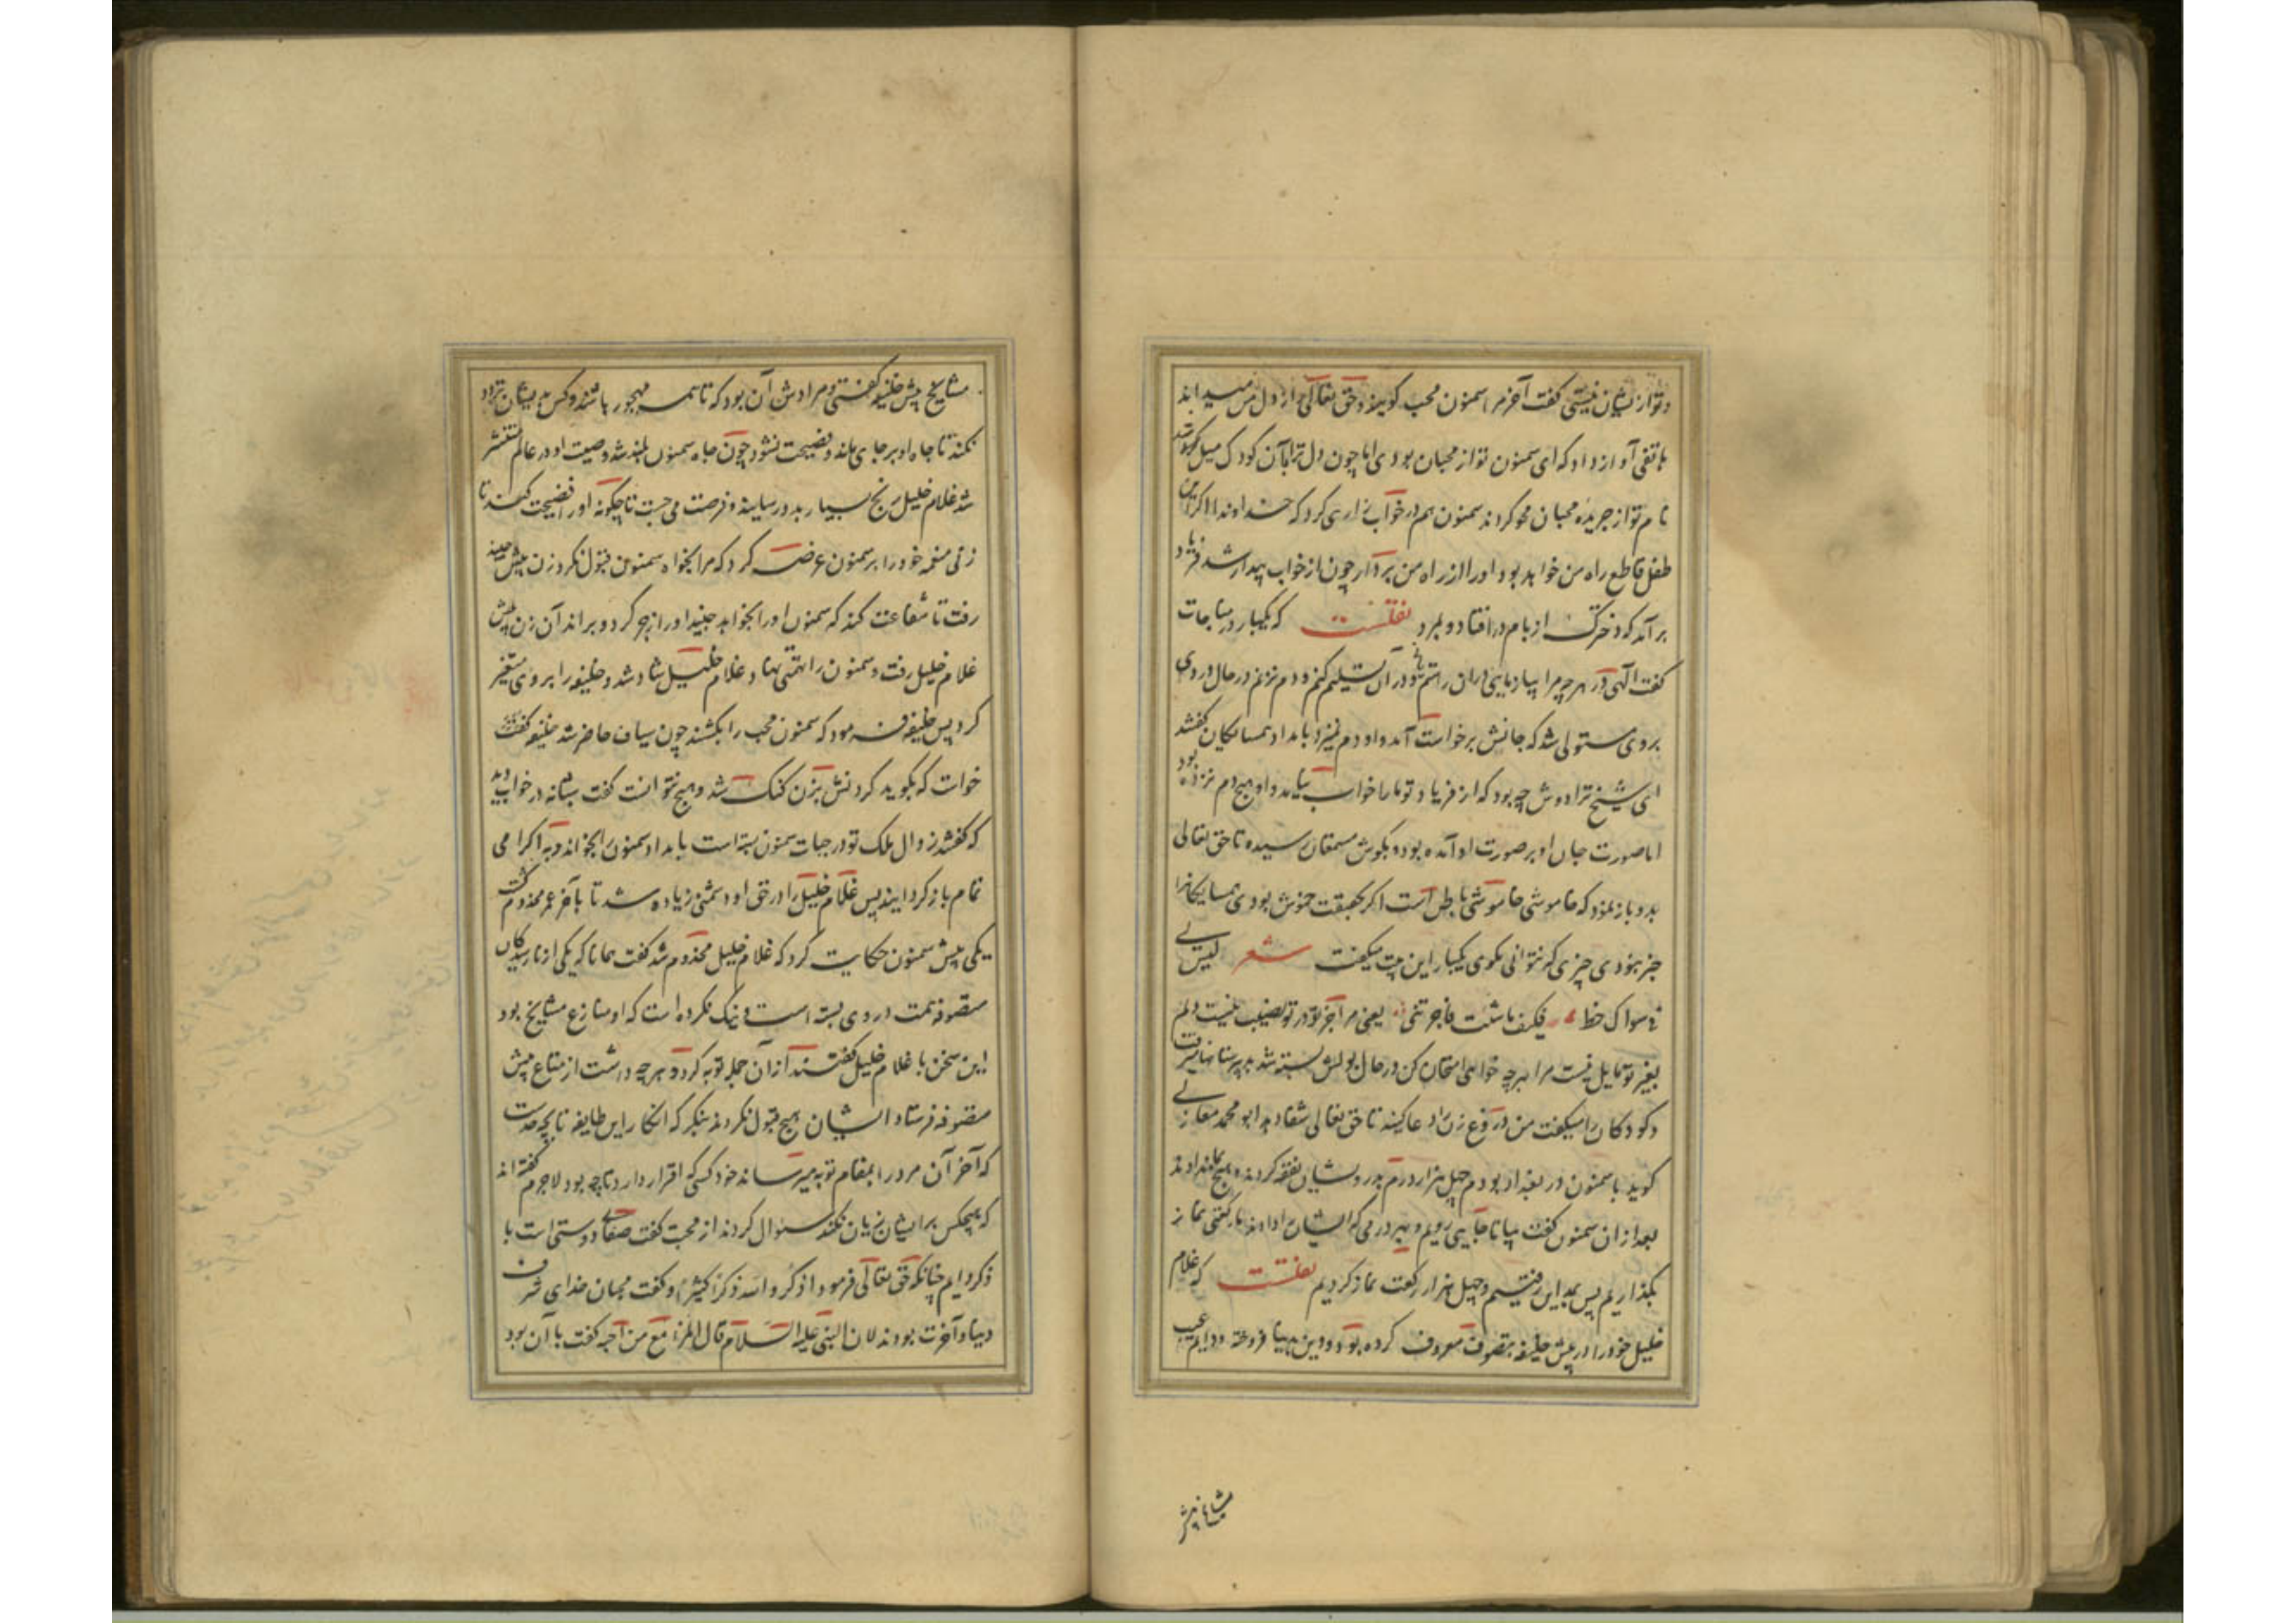 و تو از ایشان نیستی گفت آخر مرا سمنون محب گویند و حق تعالی از دل من میداند
هاتفی آواز داد که ای سمنون تو از محبان بودی اما چون دل ترا بآن کودک میل
نام تو از جریده محبان محو کردند سمنون هم در خواب زاری کرد که خداوندا اگر این
طفل قاطع راه من خواهد بود او را از راه من بردار چون از خواب بیدار شد فریاد
برآمد که دخترک از بام در افتاد و بمرد نقلست که یکبار در مناجات
گفت الهی در هرچه مرا بیازمایی در آن راستم یابی و در آن تسلیم کنم و دم نزنم در حال دردی
بر وی مستولی شد که جانش برخواست آمد و او دم نمیزد بامداد همسایکان گفتند
ای شیخ ترا دوش چه بود که از فریاد تو ما را خواب نیامد و او هیچ دم نزده بود
اما صورت حال او بر صورت او آمده بود و بگوش مستمعان رسیده تا حق تعالی
بدو باز نمود که خاموشی خاموشی باطن است اگر بحقیقت خموش بودی همسایکانرا
خبر نبودی چیزی که نتوانی مگوی یکبار این بیت میگفت شعر لیس لی
فی سواک حظ فکیف ما شئت فاختبرنی یعنی مرا جز تو در تو نصیب نیست دلم
بغیر تو مایل نیست مرا بهرچه خواهی امتحان کن در حال بولش بسته شد بدبیرستانها میرفت
و کودکان را میگفت عم دروغ زن را دعا کنید تا حق تعالی شفا دهد ابو محمد مغازلی
گوید با سمنون در بغداد بودم چهل هزار درم بدرویشان نفقه کردند و هیچ بما ندادند
بعد از آن سمنون گفت بیا تا جایی رویم و بهر درمی که ایشان را دادند رکعتی نماز
بگذاریم پس بمداین رفتیم و چهل هزار رکعت نماز کردیم نقلست که غلام
خلیل خود را در پیش خلیفه بتصوف معروف کرده بود و دین بدنیا فروخته و دایم عیب
مشایخ پیش
مشایخ پیش خلیفه گفتی و مرادش آن بود که تا همه مهجور باشند و کس بدیشان تبرک
نکند تا جاه او برجای ماند و فضیحت نشود چون جاه سمنون بلند شد و صیت او در عالم منتشر
شد غلام خلیل رنج بسیار بدو رسانید و فرصت می جست تا چگونه او را فضیحت کند تا
زنی منعمه خود را بر سمنون عرضه کرد که مرا بخواه سمنون قبول نکرد زن پیش جنید
رفت تا شفاعت کند که سمنون او را بخواهد جنید او را زجر کرد و براند آن زن پیش
غلام خلیل رفت و سمنون را تهمتی نهاد غلام خلیل شاد شد و خلیفه را بروی متغیر
کرد پس خلیفه فرمود که سمنون محب را بکشند چون سیاف حاضر شد خلیفه
خواست که بگوید گردنش بزن گنگ شد و هیچ نتوانست گفت شبانه در خواب دید
که گفتند زوال ملک تو در حیات سمنون بسته است بامداد سمنون را بخواند و به اکرامی
تمام باز گردانید پس غلام خلیل را در حق او دشمنی زیاده شد تا بآخر عمر مجذوم گشت
یکی پیش سمنون حکایت کرد که غلام خلیل مجذوم شد گفت همانا که یکی از نارسیدگان
متصوفه همت در وی بسته است و نیک نکرده است که او منازع مشایخ بود
این سخن با غلام خلیل گفتند از آن جمله توبه کرد و هرچه داشت از متاع پیش
متصوفه فرستاد ایشان هیچ قبول نکردند بنگر که انکار این طایفه تا چه حدست
که آخر آن مرد را بمقام توبه میرساند خود کسی که اقرار دارد تا چه بود لاجرم گفته اند
که هیچکس بر ایشان زیان نکند سئوال کردند از محبت گفت صفای دوستی است با
ذکر دایم چنانکه حق تعالی فرمود اذکروا الله ذکرا کثیرا و گفت محبان خدای شرف
دنیا و آخرت بودند لان النبی علیه السلام قال المرء مع من احبه گفت با آن بود